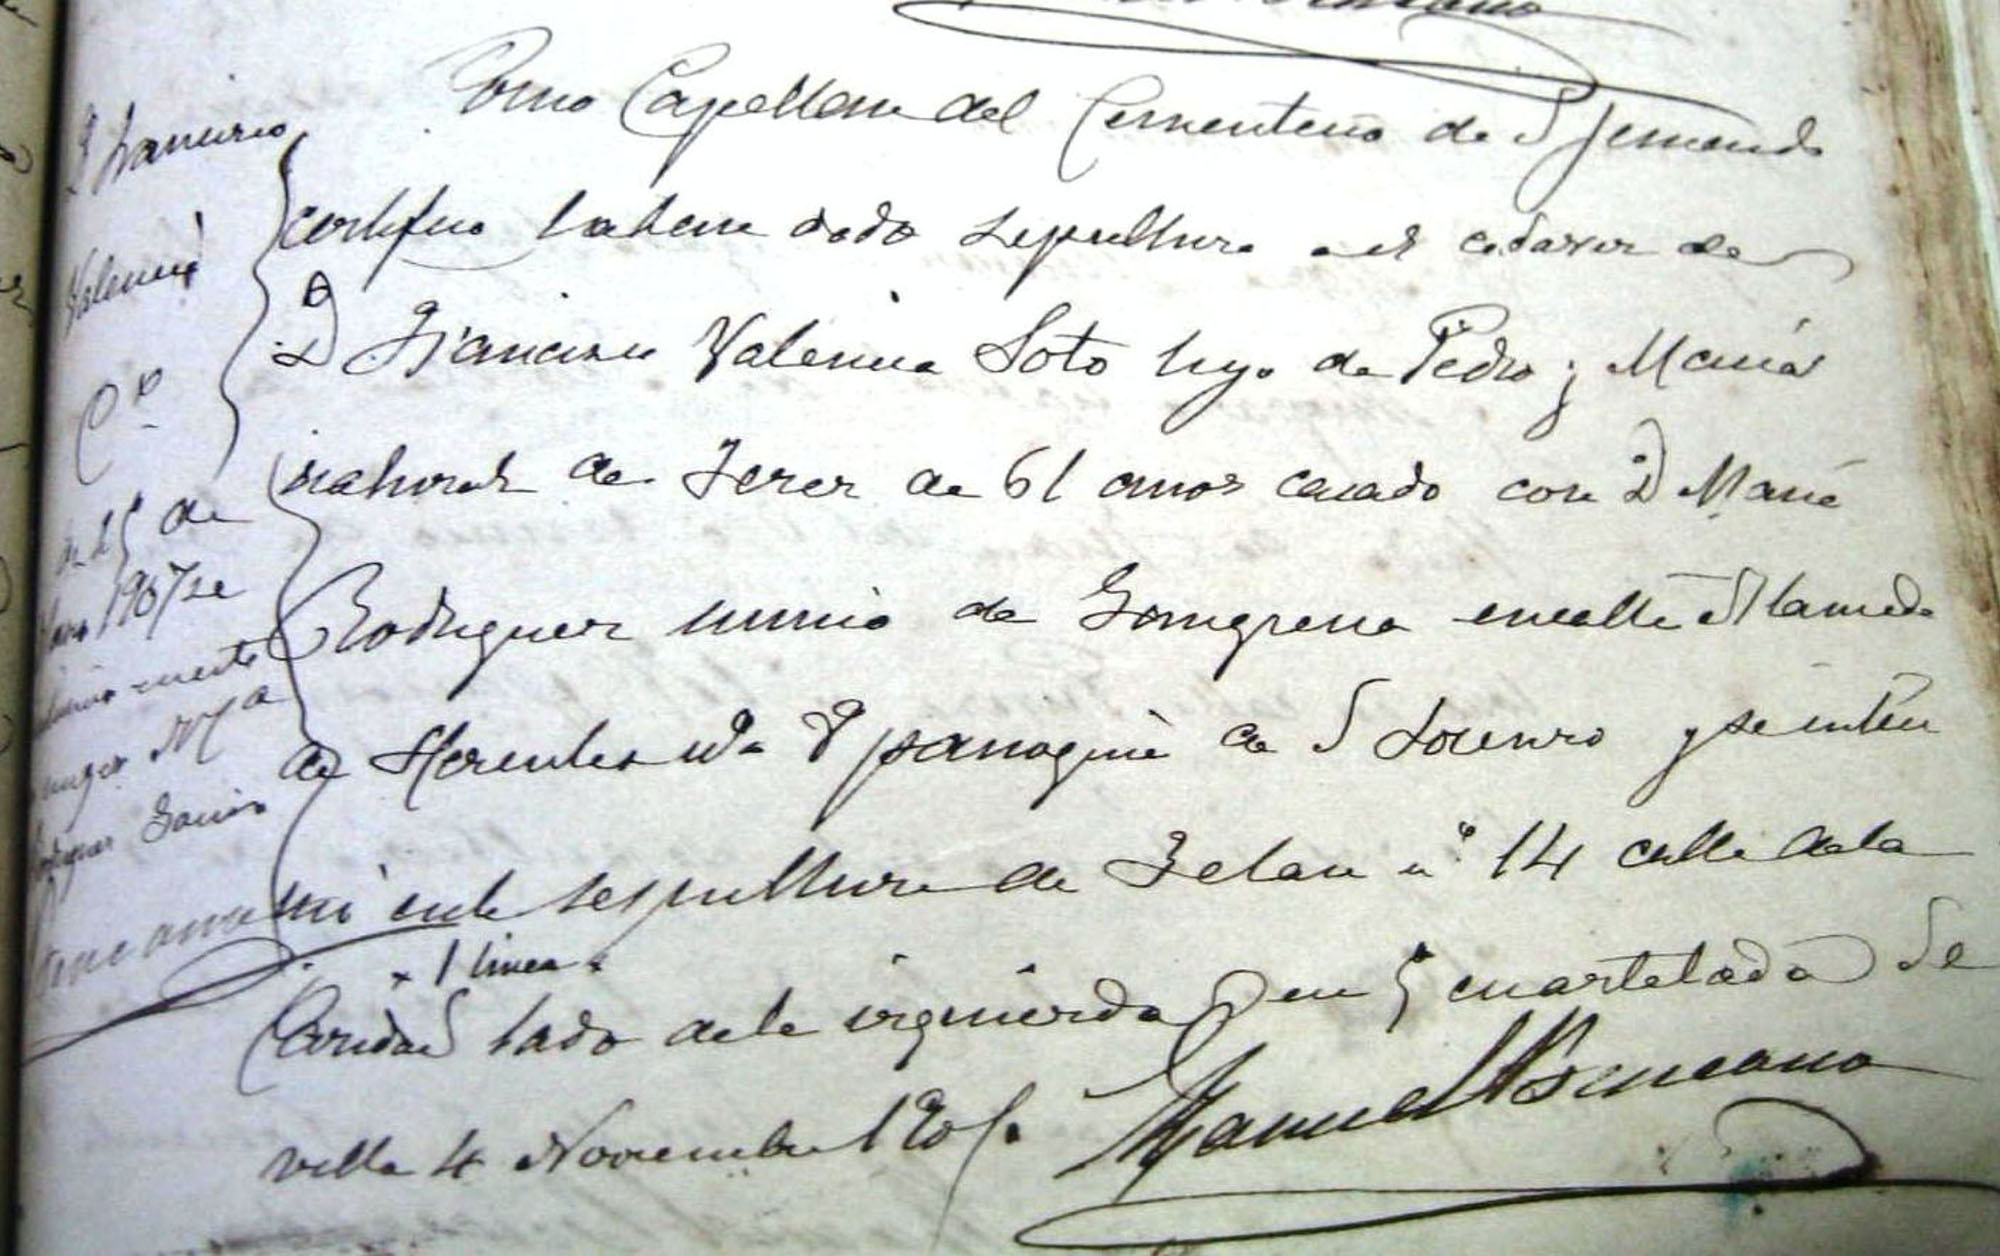 D Francisco
Valencia
de 25 de
1907 se
mente
Mª
Garcia
Como Capellan del Cementerio de S Fernando
certifico haberse dado sepultura a el cadaver de
D Francisco Valencia Soto hijo de Pedro y Maria
natural de Jerez de 61 años casado con Dª Maria
Rodriguez murio de Gangrena en calle Alameda
de Hercules nº 8 parroquia de S Lorenzo y se
en la sepultura de nº 14 calle de la
1 linea
Caridad lado de la izquierda en 5 cuartelada Se
villa 4 Noviembre 1905. Manuel Bencano